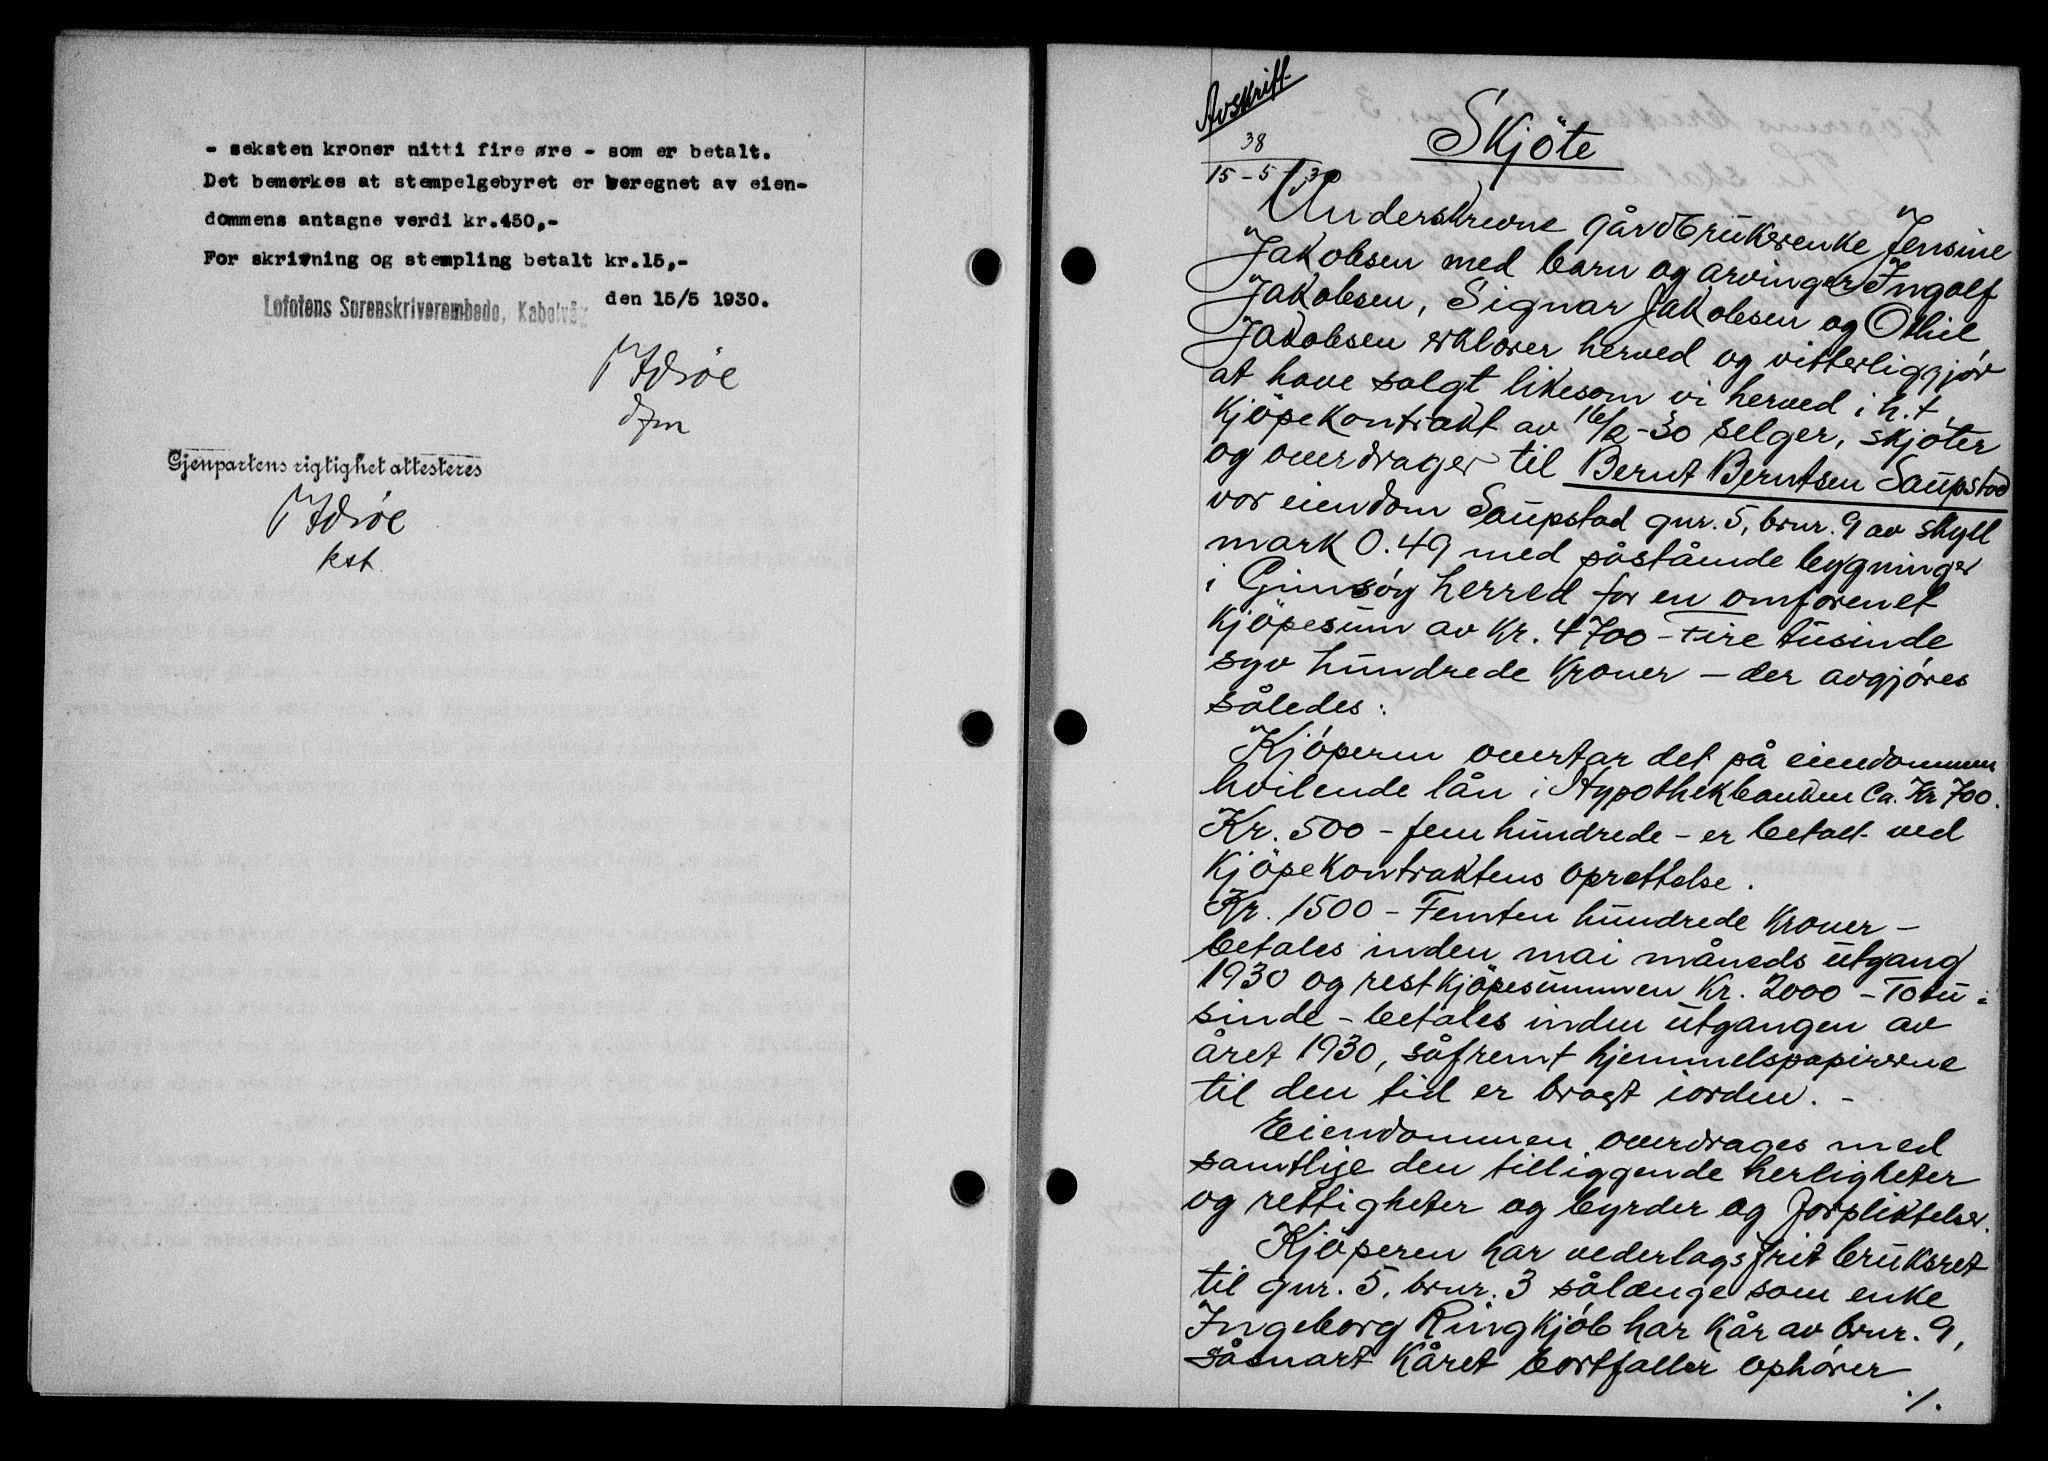 - seksten kroner nitti fire øre - som er betalt.
Det bemerkes at stempelgebyret er beregnet av eien-
dommens antagne verdi kr.450,-
For skrivning og stempling betalt kr.15,-
Lofotens Sorenskriverembede, Kabelvåg den 15/5 1930.
dfm
Gjenpartens rigtighet attesteres
kst.
Avskrift
38
15-5-30
Skjöte
Underskrevne gårdbrukerenke Jensine
Jakobsen med barn og arvinger Ingolf
Jakobsen, Signar Jakobsen og Othil
Jakobsen erklærer herved og vitterliggjör
at have solgt likesom vi herved i h.t.
Kjöpekontrakt av 16/2-30 selger, skjöter
og overdrager til Bernt Berntsen Saupstad
vor eiendom Saupstad gnr. 5, brnr. 9 av skyll
mark 0.49 med påstående bygninger
i Gimsöy herred for en omforenet
Kjöpesum av Kr. 4700 - Fire tusinde
syv hundrede Kroner - der avgjöres
således:
Kjöperen overtar det på eiendommen
hvilende lån i Hypothekbanken Ca. Kr 700.
Kr. 500 - fem hundrede - er betalt ved
Kjöpekontraktens oprettelse.
Kr. 1500 - Femten hundrede Kroner -
betales inden mai måneds utgang
1930 og restkjöpesummen Kr. 2000 - Totu=
sinde - betales inden utgangen av
året 1930, såfremt hjemmelspapirerne
til den tid er bragt iorden. -
Eiendommen overdrages med
samtlige den tilliggende herligheter
og rettigheter og byrder og forpliktelser.
Kjöperen har vederlagsfrit bruksret
til gnr. 5, brnr. 3 sålænge som enke
Ingeborg Ringkjöb har Kår av brnr. 9,
såsnart Kåret bortfaller ophörer
./.